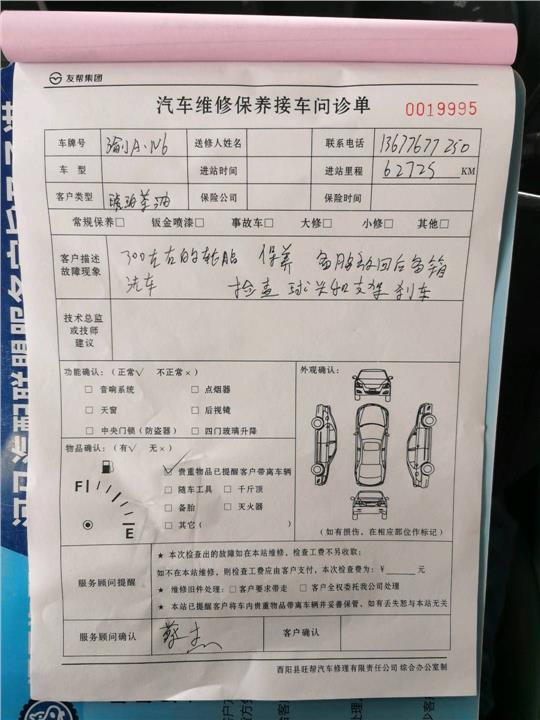 友帮集团
汽车维修保养接车问诊单
0019995
车牌号 渝A·N6 送修人姓名 联系电话 13677677250
车型 进站时间 进站里程 62725 KM
客户类型 保险公司 保险时间
常规保养□ 钣金喷漆□ 事故车□ 大修□ 小修□ 其他□
客户描述
故障现象
300左右的轮胎 保养 备胎放回后备箱
洗车 检查球头和支架 刹车
技术总监
或技师
建议
功能确认:(正常√ 不正常×)
□ 音响系统 □ 点烟器
□ 天窗 □ 后视镜
□ 中央门锁(防盗器) □ 四门玻璃升降
外观确认:
(如有损伤,在相应部位作标记)
物品确认:(有√ 无×)
F E
☑ 贵重物品已提醒客户带离车辆
□ 随车工具 □ 千斤顶
□ 备胎 □ 灭火器
□ 其它(
服务顾问提醒
★ 本次检查出的故障如在本站维修,检查工费不另收取;
如不在本站维修,则检查工费应由客户支付,本次检查费为:¥______元
★ 维修旧件处理:□ 客户要求带走 □ 客户全权委托我公司处理
★ 本站已提醒客户将车内贵重物品带离车辆并妥善保管,如有丢失恕与本站无关
服务顾问确认 客户确认
酉阳县旺帮汽车修理有限责任公司 综合办公室制